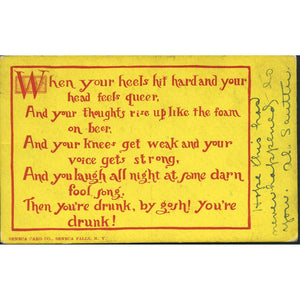 When your heels hit hard and your
head feels queer,
And your thoughts rise up like the foam
on beer,
And your knees get weak and your
voice gets strong,
And you laugh all night at some darn
fool song,
Then you're drunk, by gosh! You're
drunk!
SENECA CARD CO., SENECA FALLS, N. Y.
Hope this has
never happened to
you.